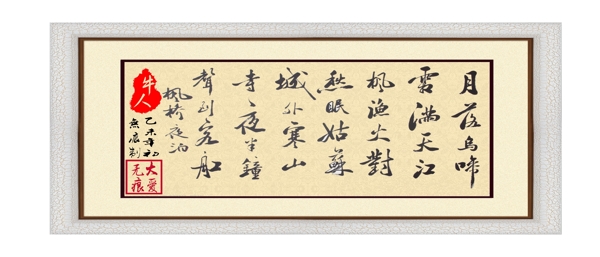 月落烏啼
霜满天江
枫渔火對
愁眠姑蘇
城外寒山
寺夜半鐘
聲到客船
枫橋夜泊
牛人
乙未年初
無痕制
大爱
无痕